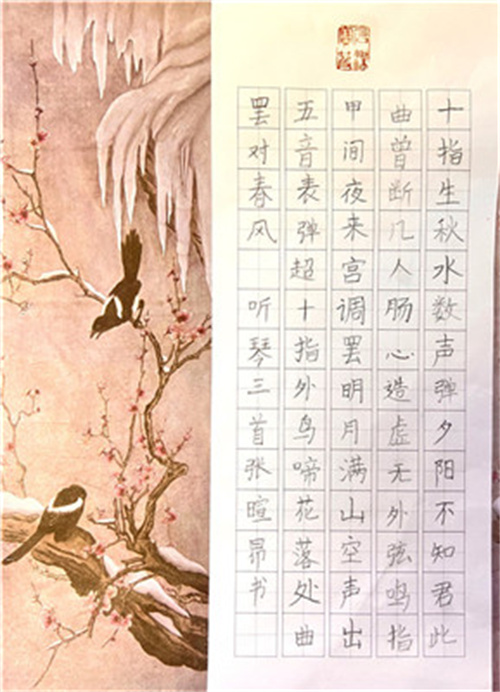 十指生秋水数声弹夕阳不知君此
曲曾断几人肠心造虚无外弦鸣指
甲间夜来宫调罢明月满山空声出
五音表弹超十指外鸟啼花落处曲
罢对春风 听琴三首张暄昂书